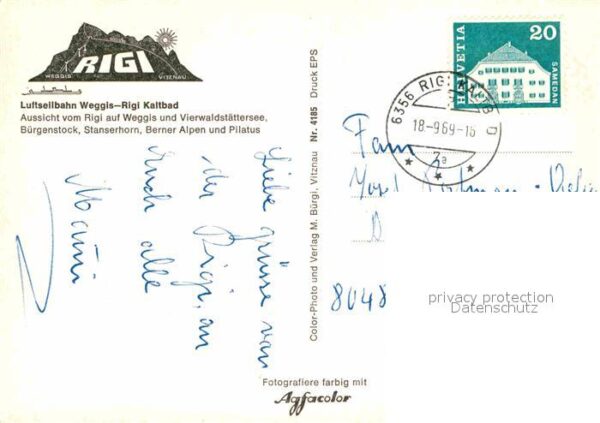 RIGI
WEGGIS VITZNAU
Luftseilbahn Weggis—Rigi Kaltbad
Aussicht vom Rigi auf Weggis und Vierwaldstättersee,
Bürgenstock, Stanserhorn, Berner Alpen und Pilatus
Liebe grüsse von
der Rigi, an
Euch alle
Mami
Color-Photo und Verlag M. Bürgi, Vitznau Nr. 4185 Druck EPS
Fotografiere farbig mit
Agfacolor
HELVETIA
20
SAMEDAN
6356 RIGI KALTB D
18-9 69-16
3a
Fam
8048
privacy protection
Datenschutz